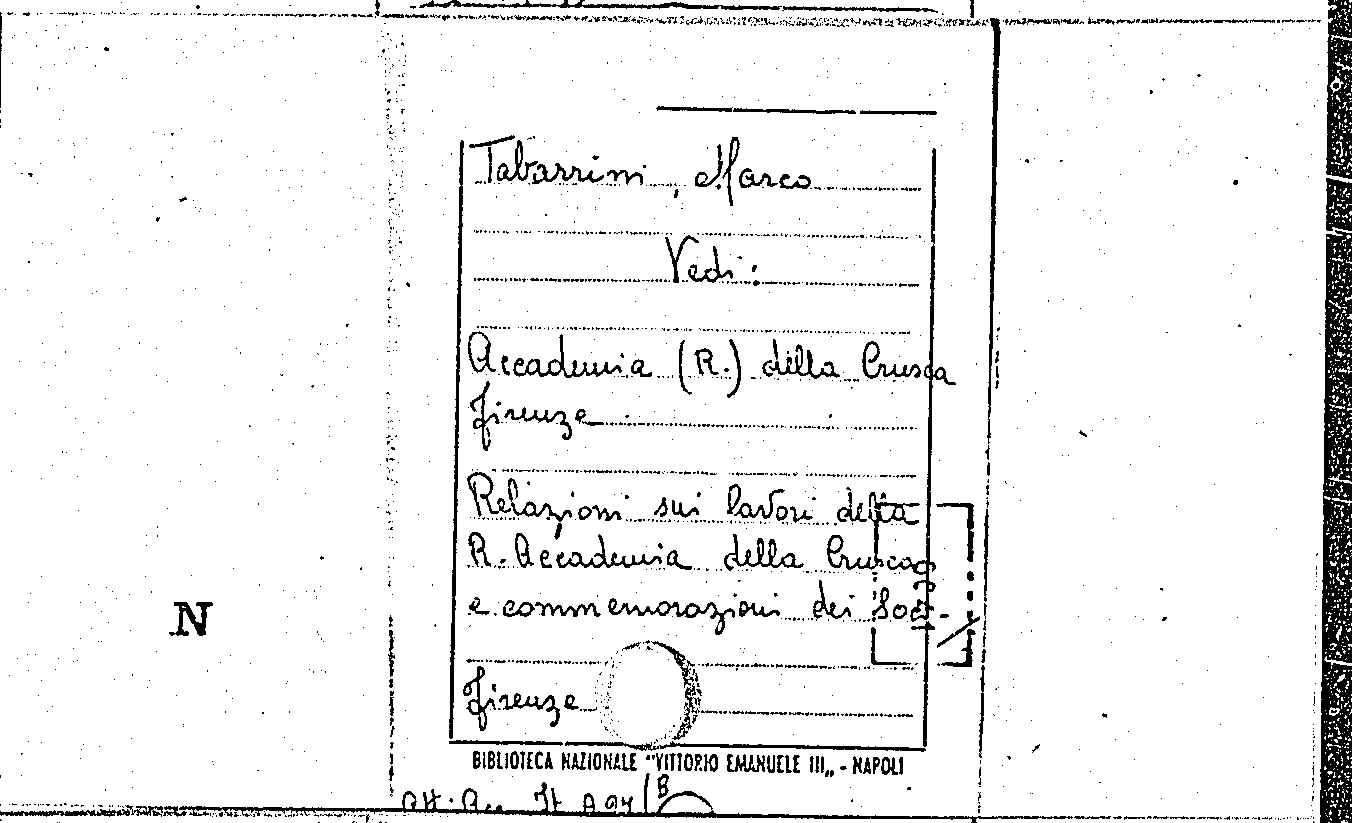 Tabarrini, Marco
Vedi:
Accademia (R.) della Crusca
Firenze
Relazioni sui lavori della
R. Accademia della Crusca
e commemorazioni dei Soci.
N
Firenze
BIBLIOTECA NAZIONALE "VITTORIO EMANUELE III„ - NAPOLI